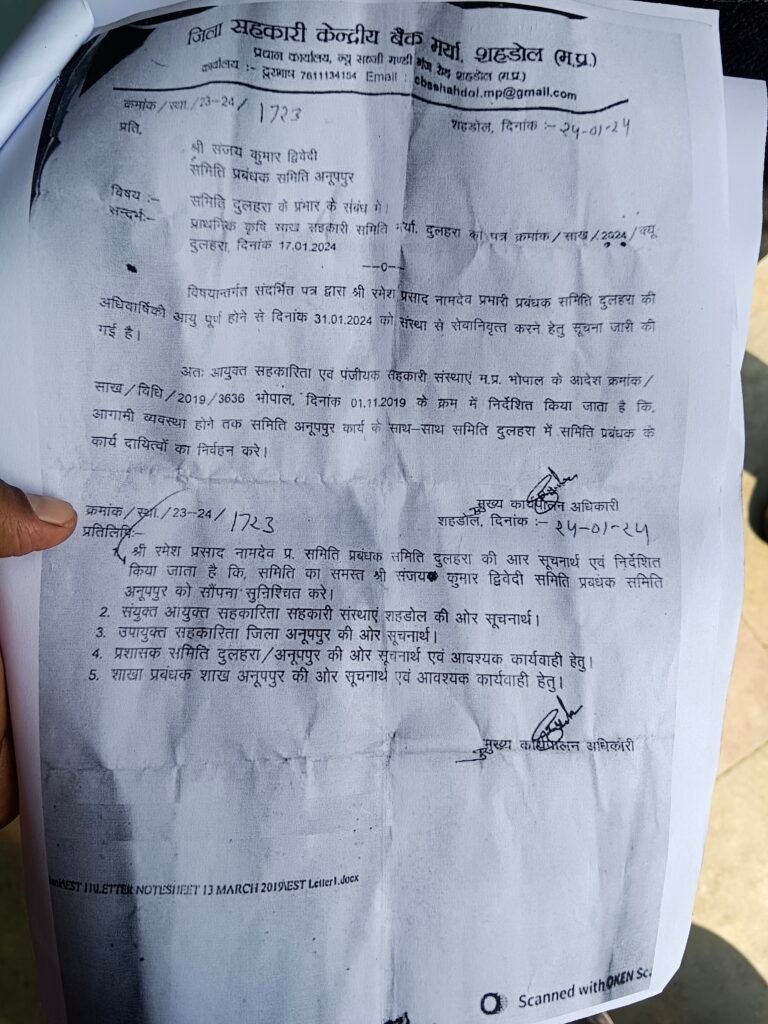 जिला सहकारी केन्द्रीय बैंक मर्या. शहडोल (म.प्र.)
प्रधान कार्यालय, न्यू सब्जी मण्डी गंज रोड शहडोल (म.प्र.)
कार्यालय :- दूरभाष 7611134154 Email : cbsshahdol.mp@gmail.com
क्रमांक/स्था./23-24/ 1723
शहडोल, दिनांक :- 24-01-24
प्रति,
श्री संजय कुमार द्विवेदी
समिति प्रबंधक समिति अनूपपुर
विषय :- समिति दुलहरा के प्रभार के संबंध में।
सन्दर्भ:- प्राथमिक कृषि साख सहकारी समिति मर्या. दुलहरा का पत्र क्रमांक/साख/2024/क्यू
दुलहरा, दिनांक 17.01.2024
---0---
विषयान्तर्गत संदर्भित पत्र द्वारा श्री रमेश प्रसाद नामदेव प्रभारी प्रबंधक समिति दुलहरा की
अधिवार्षिकी आयु पूर्ण होने से दिनांक 31.01.2024 को संस्था से सेवानिवृत्त करने हेतु सूचना जारी की
गई है।
अतः आयुक्त सहकारिता एवं पंजीयक सहकारी संस्थाएं म.प्र. भोपाल के आदेश क्रमांक/
साख/विधि/2019/3636 भोपाल, दिनांक 01.11.2019 के क्रम में निर्देशित किया जाता है कि,
आगामी व्यवस्था होने तक समिति अनूपपुर कार्य के साथ-साथ समिति दुलहरा में समिति प्रबंधक के
कार्य दायित्वों का निर्वहन करे।
मुख्य कार्यपालन अधिकारी
क्रमांक/स्था./23-24/ 1723
शहडोल, दिनांक :- 24-01-24
प्रतिलिपि:-
1. श्री रमेश प्रसाद नामदेव प्र. समिति प्रबंधक समिति दुलहरा की आर सूचनार्थ एवं निर्देशित
किया जाता है कि, समिति का समस्त श्री संजय कुमार द्विवेदी समिति प्रबंधक समिति
अनूपपुर को सौंपना सुनिश्चित करे।
2. संयुक्त आयुक्त सहकारिता सहकारी संस्थाएं शहडोल की ओर सूचनार्थ।
3. उपायुक्त सहकारिता जिला अनूपपुर की ओर सूचनार्थ।
4. प्रशासक समिति दुलहरा/अनूपपुर की ओर सूचनार्थ एवं आवश्यक कार्यवाही हेतु।
5. शाखा प्रबंधक शाख अनूपपुर की ओर सूचनार्थ एवं आवश्यक कार्यवाही हेतु।
मुख्य कार्यपालन अधिकारी
LETTER NOTESHEET 13 MARCH 2019\EST Letter1.docx
Scanned with OKEN Sc